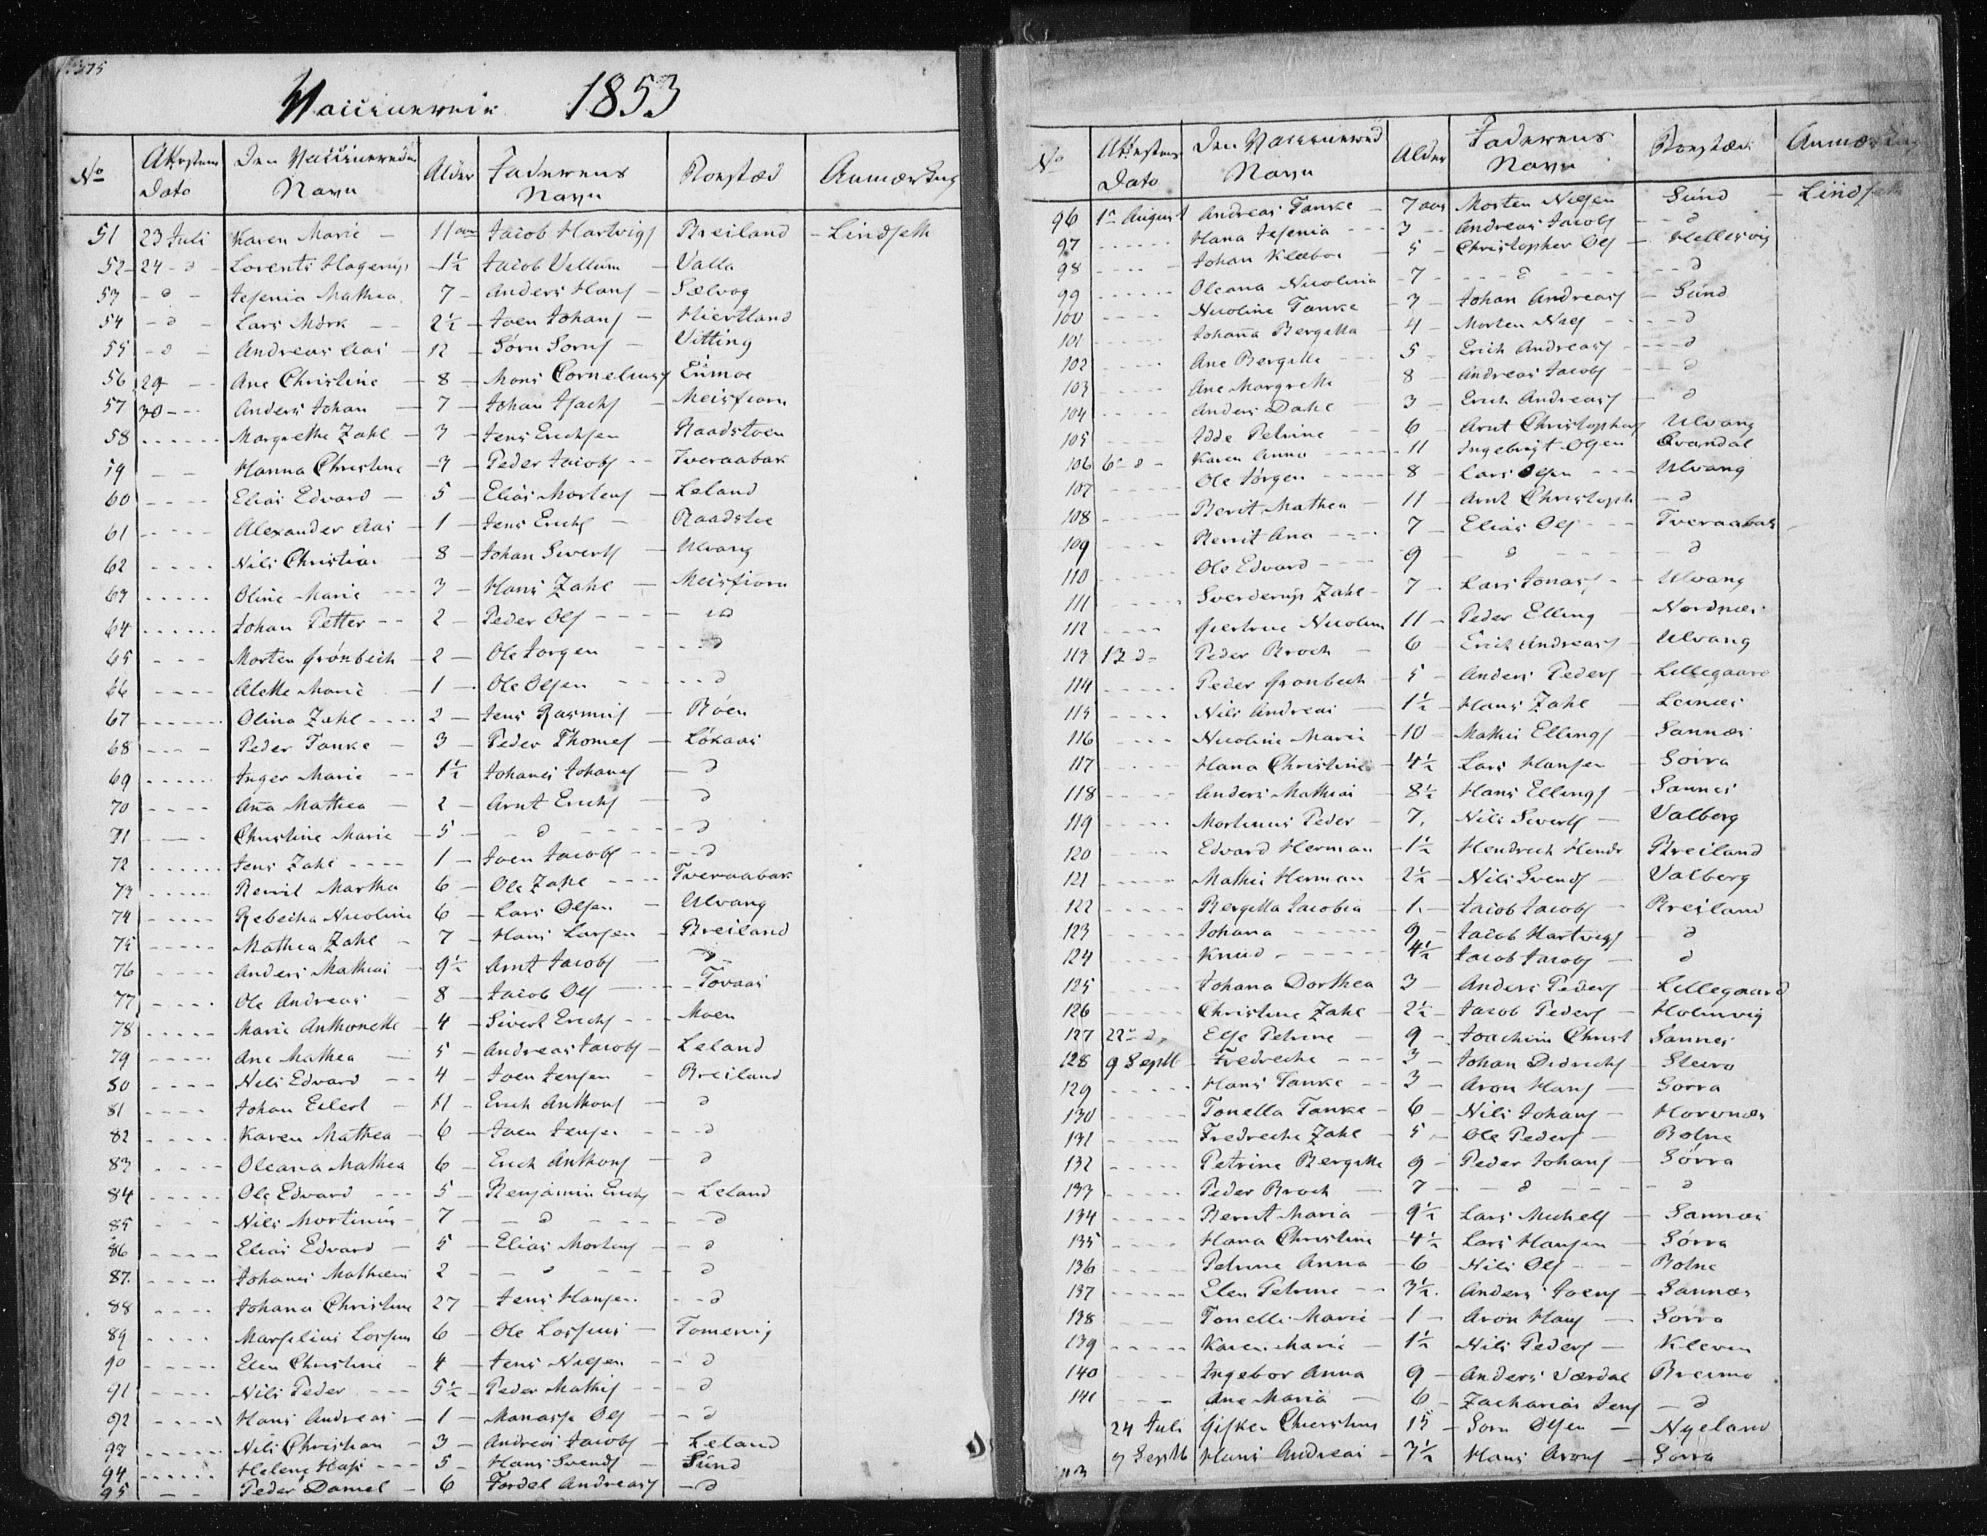 375
Vaccinerede 1853
No Attestens Dato Den Vaccineredes Navn Alder Faderens Navn Bopstæd Anmærkng
51 23 Juli Karen Marie - 11 aar Jacob Hartvigs Breiland - Lindseth
52 24 - d - Lorents Hagerup - 1½ Jacob Vellum - Valla
53 - d - Jesenia Mathea 7 - Anders Hans - Sælvog
54 - d - Lars Mörk - - 2½ - Joen Johans - Hiertland
55 - d - Andreas Aas - 12 - Sörn Sorns - Vitting
56 29 - - Ane Christine - 8 - Mons Cornelius Eunoe
57 30 - - Anders Johan - 7 - Johan Isachs - Meisfiorn
58 Margrethe Zahl - 3 - Jens Erichsen Raadstoen
59 Hanna Christine - 3 - Peder Jacobs - - Tveraabak
60 Elias Edvard - 5 - Elias Mortens - Leland
61 Alexander Aas - 1 - Jens Erichs - Raadstoe
62 Nils Christian - 8 - Johan Siverts - Ulvang
63 Oline Marie - - - 3 - Hans Zahl - Meisfiorn
64 Johan Petter - - 2 - Peder Ols - - - - d
65 Morten Grönbech - 2 - Ole Jorgen - - - d
66 Alette Marie - 1 - Ole Olsen - - - - d
67 Olina Zahl - - - 2 - Jens Rasmus - Röen
68 Peder Tanke - 3 - Peder Thomes - Lökaas
69 Inger Marie - - 1½ Johanes Johans - d
70 Ana Mathea - 2 - Arnt Erichs - d
71 Christine Marie - 5 - - d - - - - d
72 Jens Zahl - - - - 1 - Joen Jacobs - - - d
73 Berit Martha 6 - Ole Zahl - - - Tveraabak
74 Rebecka Nicoline 6 - Lars Olsen - Ulvang
75 Mathea Zahl - 7 - Hans Larsen - Breiland
76 Anders Mathias - 9½ Arnt Jacobs - - d
77 Ole Andreas - 8 - Jacob Ols - - Tovaas
78 Marie Anthonette - 4 - Sivert Erichs - - Moen
79 Ane Mathea - 5 - Andreas Jacobs - Leland
80 Nils Edvard - - 4 - Joen Jensen - Breiland
81 Johan Eilert - 11 - Erich Anthons - d
82 Karen Mathea - 6 - Joen Jensen - - - d
83 Oleana Mathea 6 - Erich Anthons - d
84 Ole Edvard - - - 5 - Benjamin Erichs - Leland
85 Nils Mortinus - 7 - - d - - - - d
86 Elias Edvard - 5 - Elias Mortens - - d
87 Johanes Mathias 2 - - d - - - d
88 Johana Christine 27 - Jens Hansen - - d
89 Marselius Lossius 6 - Ole Lossius - Tomervig
90 Elen Christine - 4 - Jens Nilsen - - d
91 Nils Peder - - - 5½ - Peder Mathis - - d
92 Hans Andreas - 1 - Manasse Ols - - d
93 Nils Christian - 3 - Andreas Jacobs - Leland
94 Helene Hass - - - 5 - Hans Svends - Sund
95 Peder Daniel - 6 Fordel Andreas - d
No Attestens Dato Den Vaccinered Navn Alder Faderens Navn Bopstæd Anmærkng
96 1te August Andreas Tanke - 7 aar Morten Nilsen Sund - Lindseth
97 Hana Jesenia - - - 3 - Andreas Jacobs - d
98 Johan Klæboe - 5 - Christopher Ols - Hellesvig
99 Oleana Nicolina - 7 - - - d - - - d
100 Nicoline Tanke - 3 - Johan Andreas - Sund
101 Johana Bergitta - 4 - Morten Nils - - - d
102 Ane Bergitte - - - 5 - Erich Andreas - - - d
103 Ane Margrethe - 8 - Andreas Jacobs - d
104 Anders Dahl - 3 - Erich Andreas - d
105 Idde Petrine - 6 - Arnt Christophers Ulvang
106 6te d - Karen Anna - - - 11 - Ingebrigt Olsen Qvandal
107 Ole Jörgen - - - - 8 - Lars Olsen - - - Ulvang
108 Berit Mathea - 11 - Arnt Christoph - d
109 Berrit Ana - - - 7 - Elias Ols - - - Tveraabak
110 Ole Edvard - - - 9 - d - - - d
111 Sverderup Zahl - 7 - Lars Jonas - - Ulvang
112 Giertrue Nicolina 11 - Peder Elling - Nordnæs
113 13 d - Peder Broch - 6 - Erich Andreas - Ulvang
114 Peder Gronbech - 5 - Anders Peders - Lillegaard
115 Nils Andreas - 1½ - Hans Zahl - Leinæs
116 Nicoline Marie - 10 - Mathis Ellings - Sannæs
117 Hana Christine - 4½ - Lars Hansen - Sörra
118 Anders Mathias - 8½ - Hans Ellings - Sannæs
119 Mortinus Peder - 7. - Nils Siverts - Valberg
120 Edvard Herman - 1½ - Hendrich Hendr Breiland
121 Mathis Herman - 2½ - Nils Svends - Valberg
122 Bergitta Jacobia - 1. - Jacob Jacobs - Breiland
123 Johana - - - - - 9 - Jacob Hartvigs - d
124 Knud - - - - - 4½ - Jacob Jacobs - d
125 Johana Dorthea 3 - Anders Peders - Lillegaard
126 Christine Zahl - 2½ - Jacob Peders - Holmvig
127 22de d. Else Petrine - 9 - Joachim Christ Sannæs
128 9 Septb - Fredreche - - - 3 - Johan Didrichs - Steiro
129 Hans Tanke - - 3 - Aron Hans - Sorra
130 Tonella Tanke - 6 - Nils Johans - Hovenæs
131 Fredreche Zahl - 5 - Ole Peders - Bolne
132 Petrine Bergitte 9 - Peder Johans - Sörra
133 Peder Broch - 7 - - d - - - d
134 Berrit Maria - 9½ Lars Michels - Sannæs
135 Hana Christine - 4½ - Lars Hansen - Sörra
136 Petrine Anna - 6 - Nils Ols - - Bolne
137 Elen Petrine - - 3½. Anders Joens - Sannæs
138 Tonelle Marie - 1 - Aron Hans - Sorra
139 Karen Marie - 1½ Nils Peders - Kleven
140 Ingebor Anna 9 - Anders Værdal Bremo
141 Ane Maria - 6 - Zacharias Jens - d
24 Juli Gisken Christine 15 - Sorn Olsen - Nyeland
9 Septb Hans Andreas - 3½ - Hans Arons - Sorra